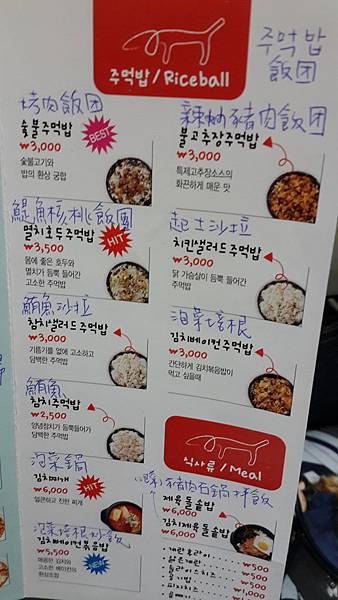 주먹밥 / Riceball
주먹밥
飯団
烤肉飯団
숯불주먹밥
₩3,000
BEST
숯불고기와
밥의 환상 궁합
辣炒豬肉飯団
불고추장주먹밥
₩3,000
특제고추장소스의
화끈하게 매운 맛
鯷魚核桃飯團
멸치호두주먹밥
₩3,500
HIT
몸에 좋은 호두와
멸치가 듬뿍 들어간
고소한 주먹밥
起士沙拉
치킨샐러드주먹밥
₩3,000
닭 가슴살이 듬뿍 들어간
주먹밥
鮪魚沙拉
참치샐러드주먹밥
₩3,000
기름기를 없애 고소하고
담백한 주먹밥
泡菜培根
김치베이컨주먹밥
₩3,000
간단하게 김치볶음밥이
먹고 싶을때
鮪魚
참치주먹밥
₩2,500
양념참치가 듬뿍들어가
담백한 주먹밥
식사류 / Meal
泡菜鍋
김치찌개
₩6,000
HIT
얼큰하고 진한 찌개
豬肉石鍋拌飯
제육돌솥밥
₩6,000
김치제육돌솥밥
₩6,000
泡菜培根炒飯
김치베이컨볶음밥
₩5,500
매콤한 김치와
고소한 베이컨의
환상조합
계란후라이
₩500
₩500
₩500
₩1,000